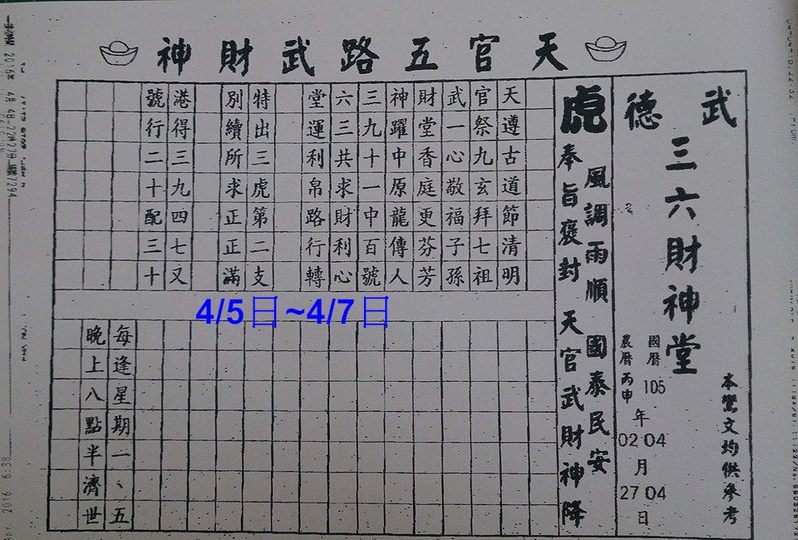 天官五路武財神
武德
三六財神堂
本鸞文均供參考
國曆 105 年 04 月 04 日
農曆丙申 02 27
虎
風調雨順 國泰民安
奉旨褒封 天官武財神降
天遵古道節清明
官祭九玄拜七祖
武一心敬福子孫
財堂香庭更芬芳
神躍中原龍傳人
三九十一中百號
六三共求財利心
堂運利帛路行轉
特出三虎第二支
別續所求正正滿
港得三九四七又
號行二十配三十
4/5日~4/7日
每逢星期一、五
晚上八點半濟世
2016年 4月 4日 22時27分
7294
2016 6:38